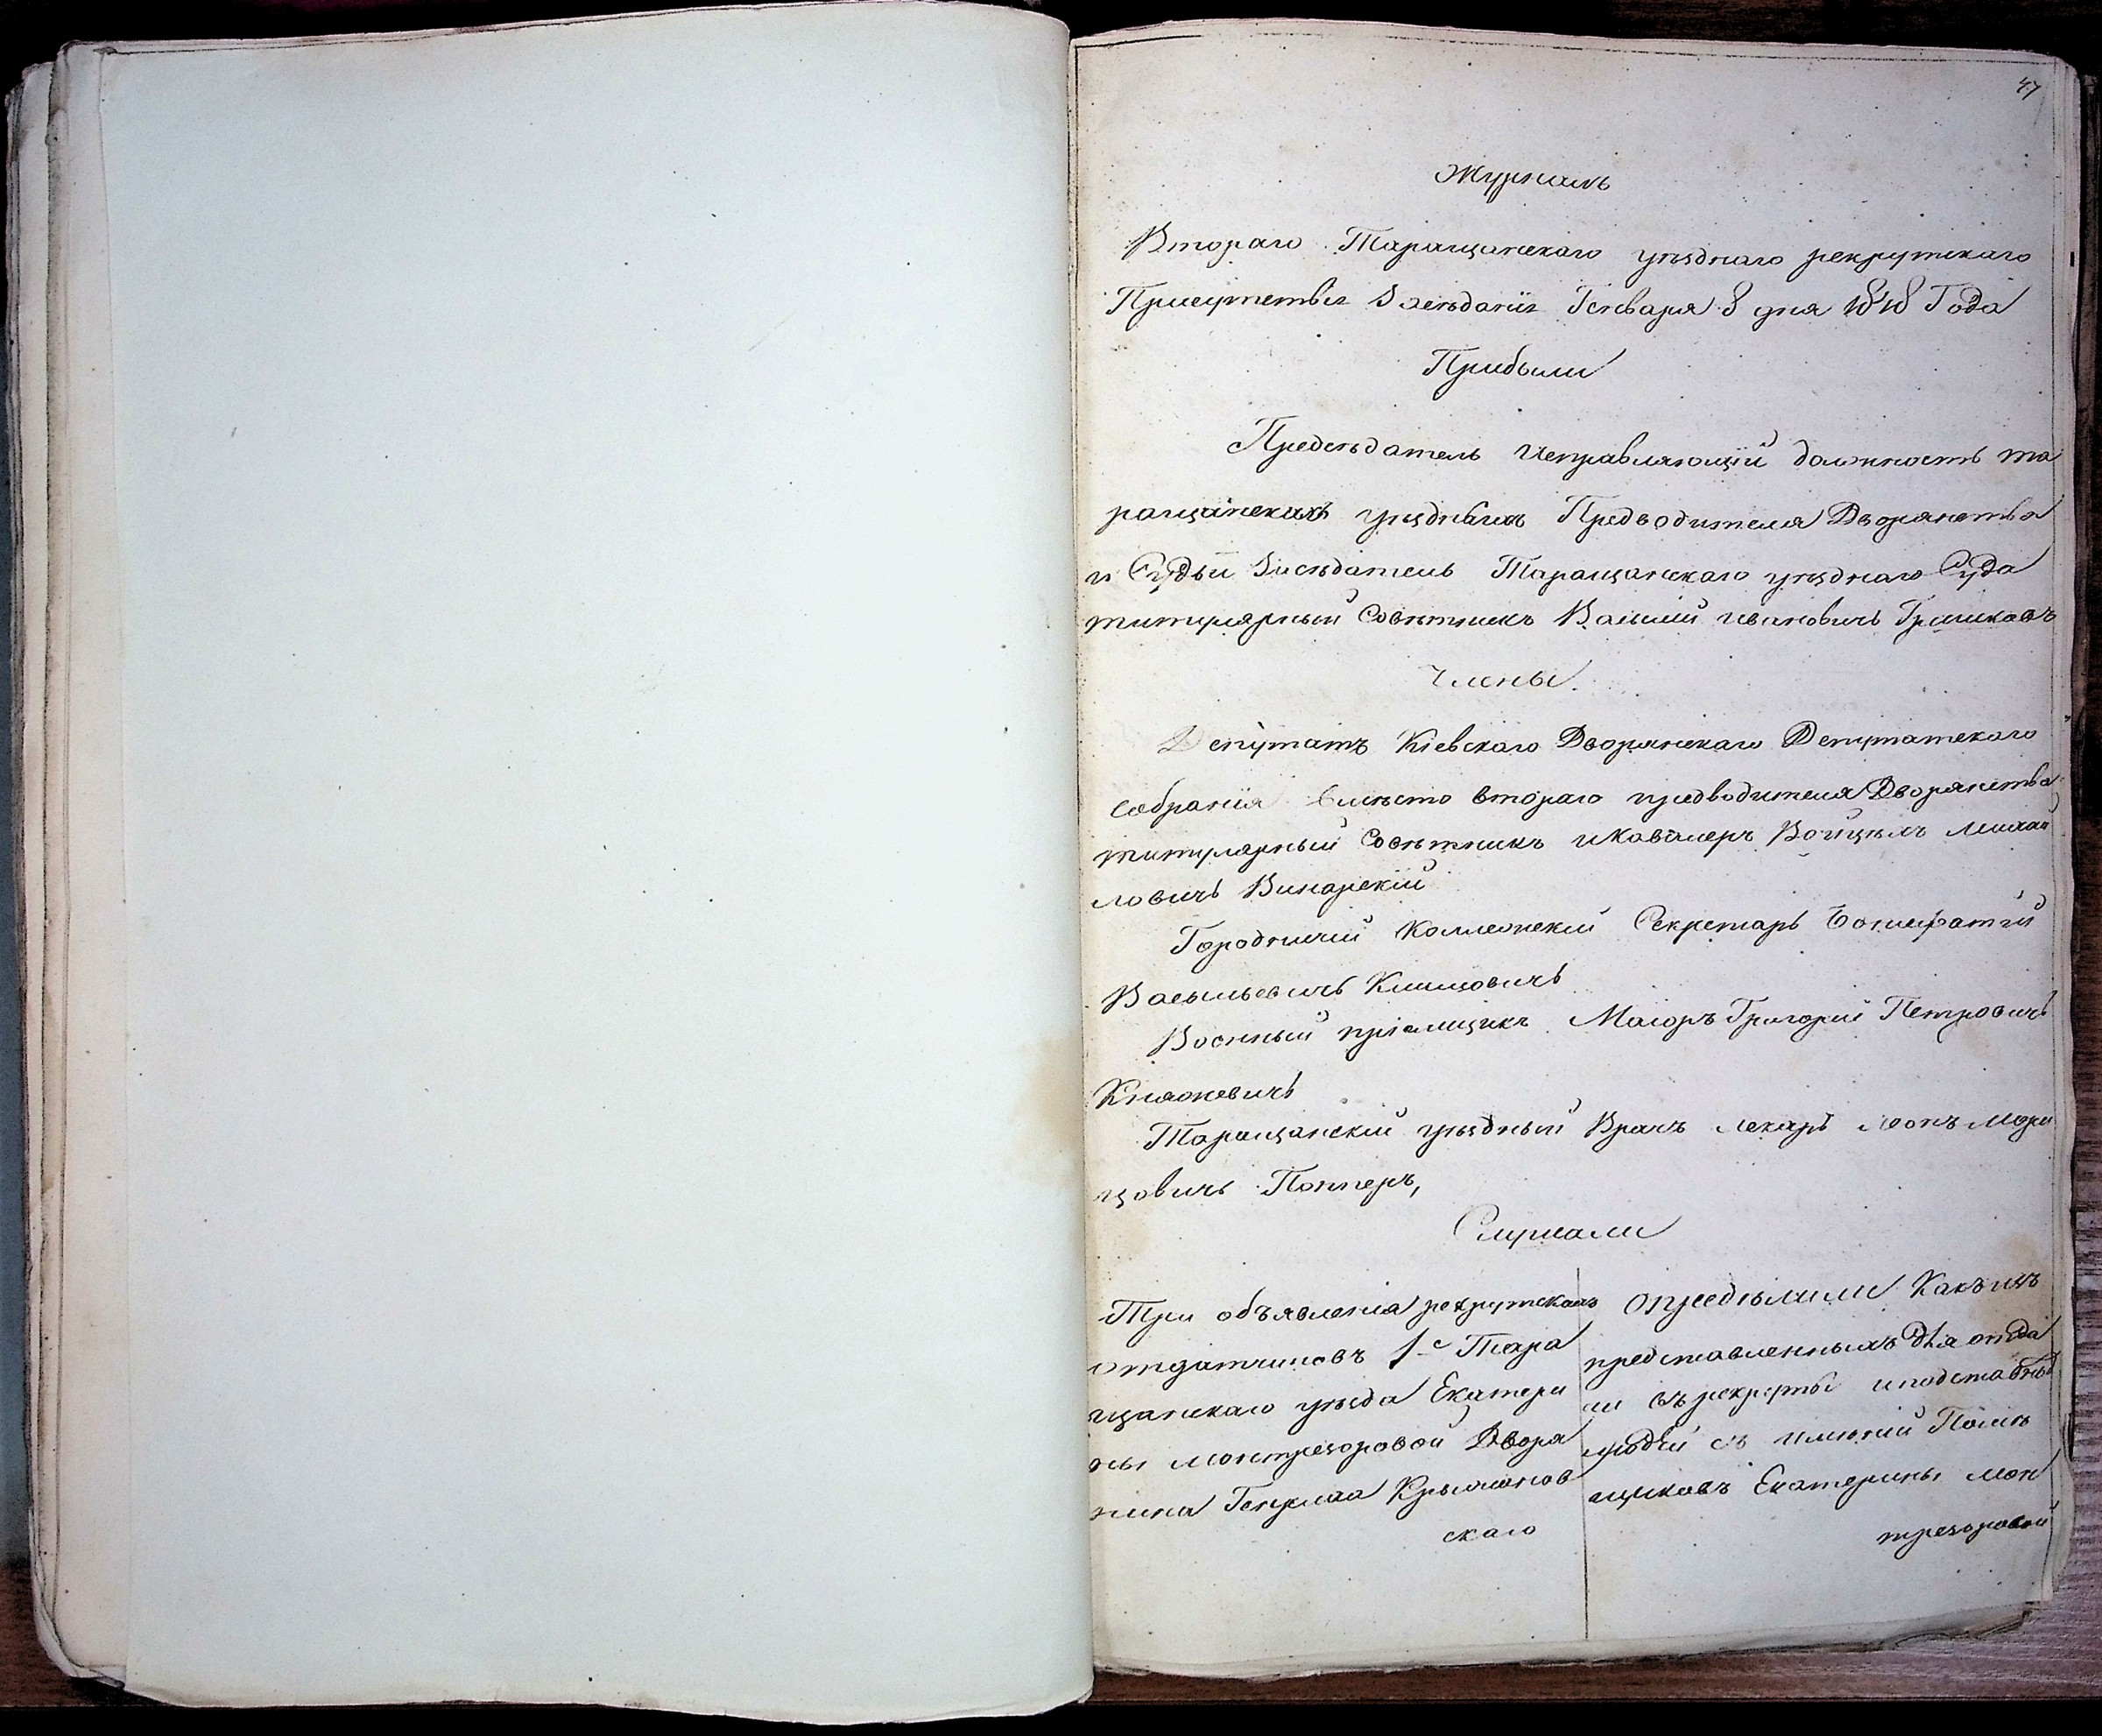 47
Журналъ
Втораго Таращанскаго уѣзднаго рекрутскаго
Присутствія Засѣданія Генваря 8 дня 1848 Года
Прибыли
Предсѣдатель Исправляющій должность та
ращанскихъ уѣздныхъ Предводителя Дворянства
и Судьи Засѣдатель Таращанскаго уѣзднаго Суда
титулярный Совѣтникъ Василій Ивановичъ
Члены.
Депутатъ Кіевскаго Дворянскаго Депутатскаго
собранія вмѣсто втораго предводителя Дворянства
титулярный Совѣтникъ и Кавалеръ Михай
ловичъ Винарскій
Городничій Коллежскій Секретарь Бонифатій
Васильевичъ
Военный пріемщикъ Маіоръ Григорій Петровичъ
Княжевичъ
Таращанскій уѣздный Врачъ лекарь Леонъ Мори
цовичъ Попперъ,
Слушали
Три объявленія рекрутскихъ
отдатчиковъ 1-е Тара
щанскаго уѣзда Екатери
ны Монтрезоровой Дворя
нина Генриха Крыжанов
скаго
Опредѣлили Какъ изъ
представленныхъ для отда
чи въ рекруты и подставныхъ
людей съ имѣній Помѣ
щиковъ Екатерины Мон
трезоровой